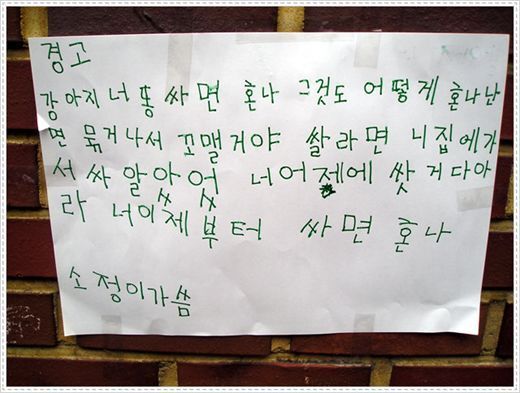 경고
강아지 너 똥 싸면 혼나 그것도 어떻게 혼나냔
면 묶거나서 꼬맬거야 쌀라면 니집에가
서 싸 알았어 너어제에 쌋 거 다아
라 너이제부터 싸면 혼나
소정이가씀